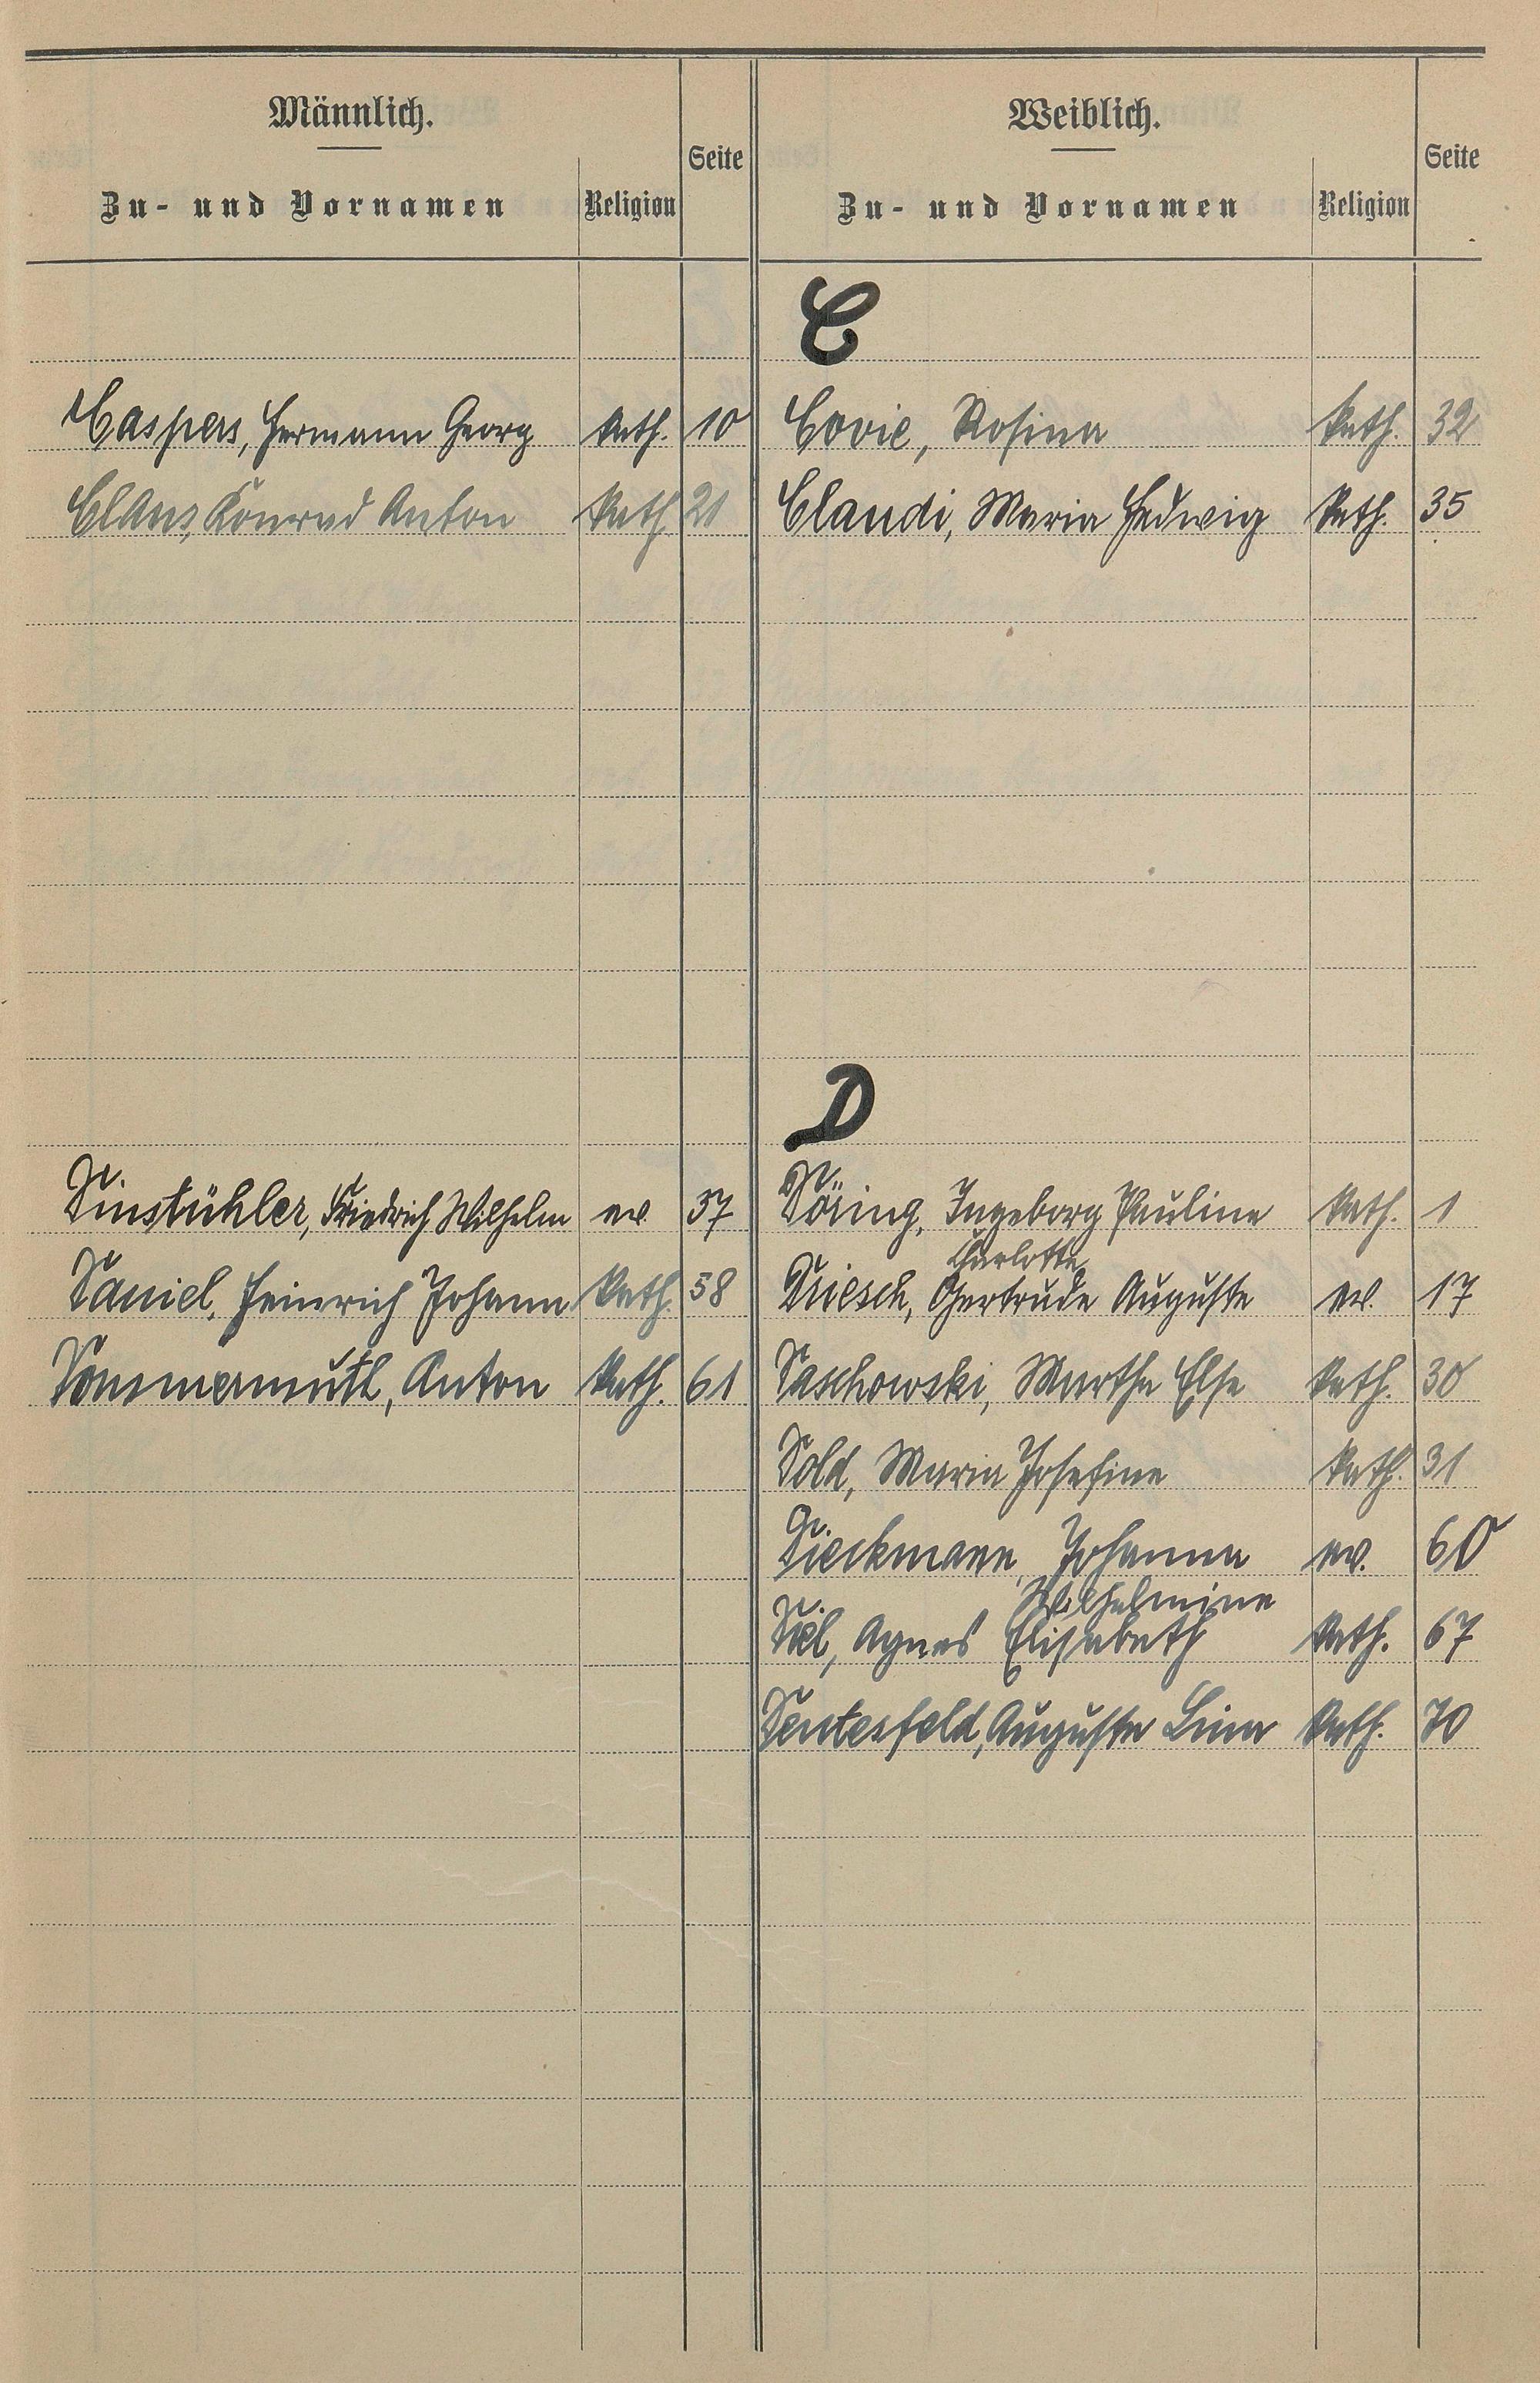 Männlich.
Seite
Zu- und Vornamen
Religion
Weiblich.
Seite
Zu- und Vornamen
Religion
C
Caspers, Hermann Georg kath. 10
Covie, Rosina kath. 32
Claus, Konrad Anton kath. 21
Claudi, Maria Hedwig kath. 35
D
Dinstühler, Friedrich Wilhelm ev. 37
Döring, Ingeborg Pauline kath. 1
Charlotte
Daniel, Heinrich Johann kath. 58
Driesch, Gertrude Auguste ev. 17
Dommermuth, Anton kath. 61
Daschowski, Martha Else kath. 30
Dold, Maria Josefine kath. 31
Dieckmann, Johanna ev. 60
Wilhelmine
Diel, Agnes Elisabeth kath. 67
Dentesfeld, Auguste Lina kath. 70